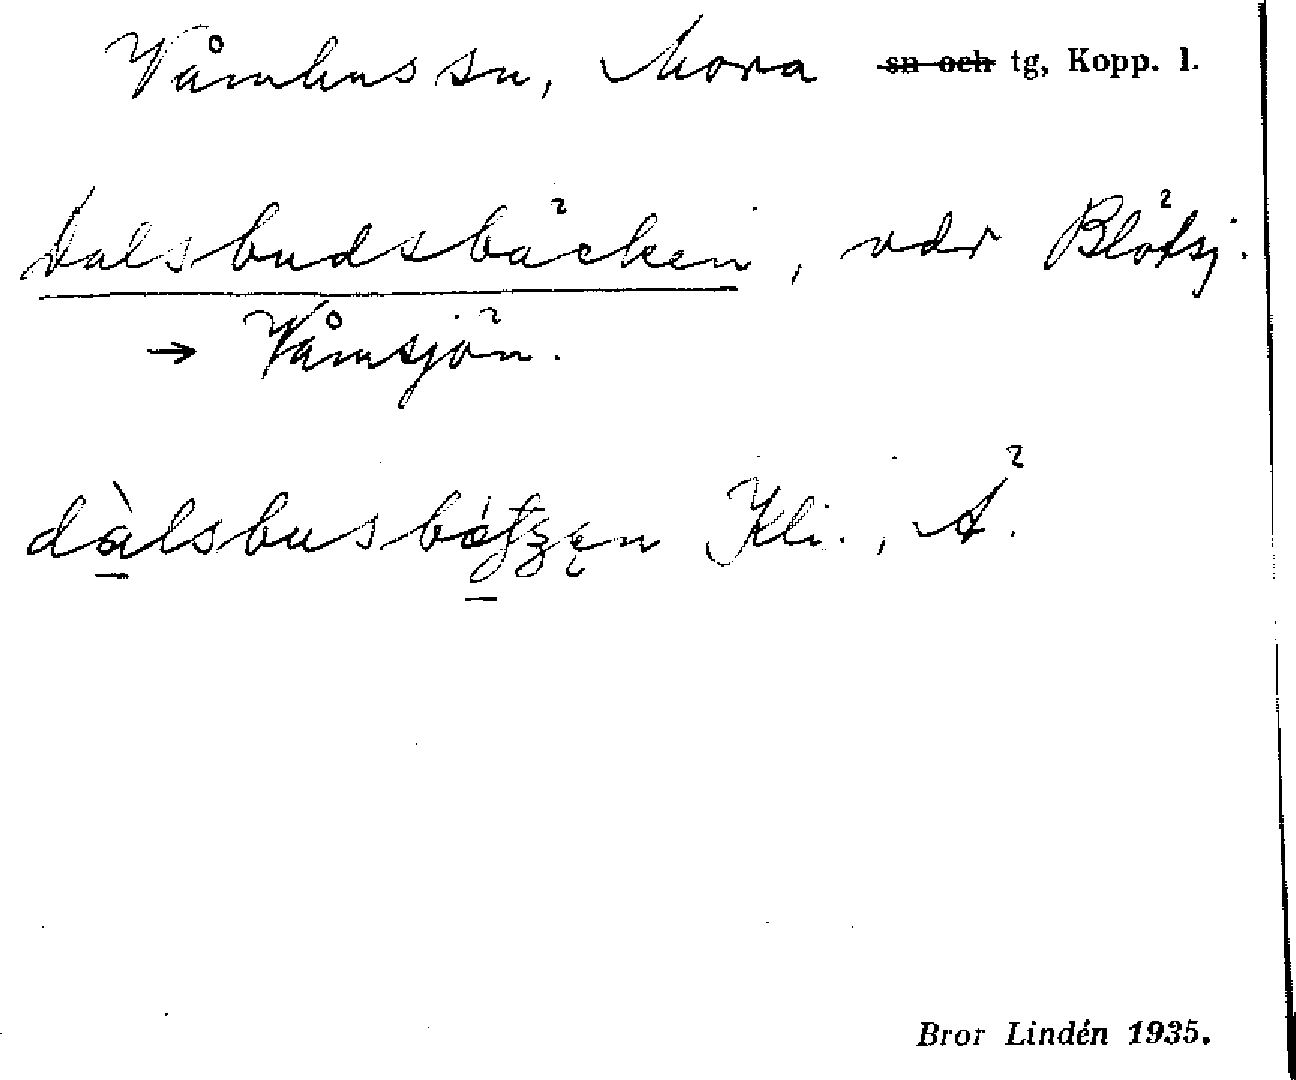 Våmhus sn, Mora sn och tg, Kopp. l.
Dalsbudsbäcken, vdr Blötsj.
→ Våmsjön.
Kli., Ä.
Bror Lindén 1935.